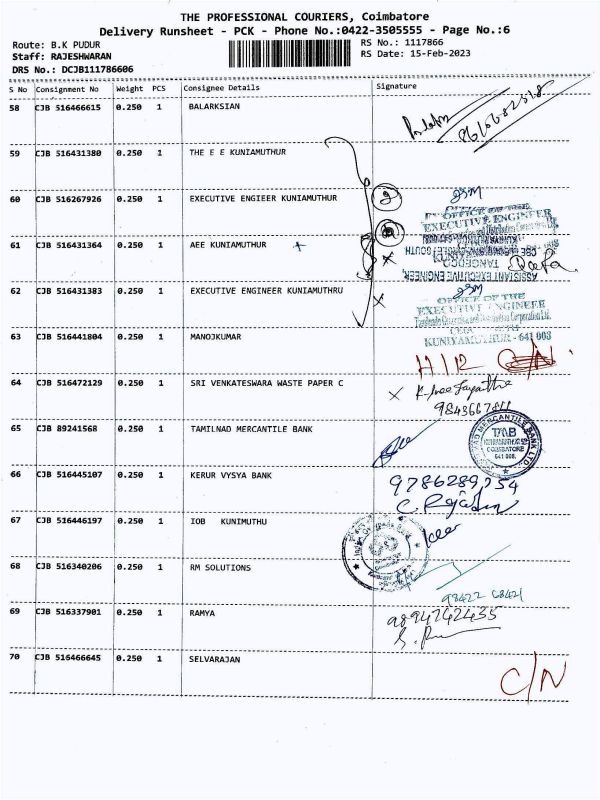 THE PROFESSIONAL COURIERS, Coimbatore
Delivery Runsheet - PCK - Phone No.:0422-3505555 - Page No.:6
Route: B.K PUDUR
RS No.: 1117866
Staff: RAJESHWARAN
RS Date: 15-Feb-2023
DRS No.: DCJB111786606
S No Consignment No Weight PCS Consignee Details Signature
58 CJB 516466615 0.250 1 BALARKSIAN
59 CJB 516431380 0.250 1 THE E E KUNIAMUTHUR
60 CJB 516267926 0.250 1 EXECUTIVE ENGIEER KUNIAMUTHUR
OFFICE OF THE
EXECUTIVE ENGINEER
61 CJB 516431364 0.250 1 AEE KUNIAMUTHUR
TANGEDCO
ASSISTANT EXECUTIVE ENGINEER
62 CJB 516431383 0.250 1 EXECUTIVE ENGINEER KUNIAMUTHRU
OFFICE OF THE
EXECUTIVE ENGINEER
KUNIYAMUTHUR - 641 008
63 CJB 516441804 0.250 1 MANOJKUMAR
64 CJB 516472129 0.250 1 SRI VENKATESWARA WASTE PAPER C
65 CJB 89241568 0.250 1 TAMILNAD MERCANTILE BANK
TAMILNAD MERCANTILE BANK LTD.
COIMBATORE
641 008.
66 CJB 516445107 0.250 1 KERUR VYSYA BANK
9786289754
67 CJB 516446197 0.250 1 IOB KUNIMUTHU
68 CJB 516340206 0.250 1 RM SOLUTIONS
98422 68421
69 CJB 516337901 0.250 1 RAMYA
9894742435
70 CJB 516466645 0.250 1 SELVARAJAN
C/N